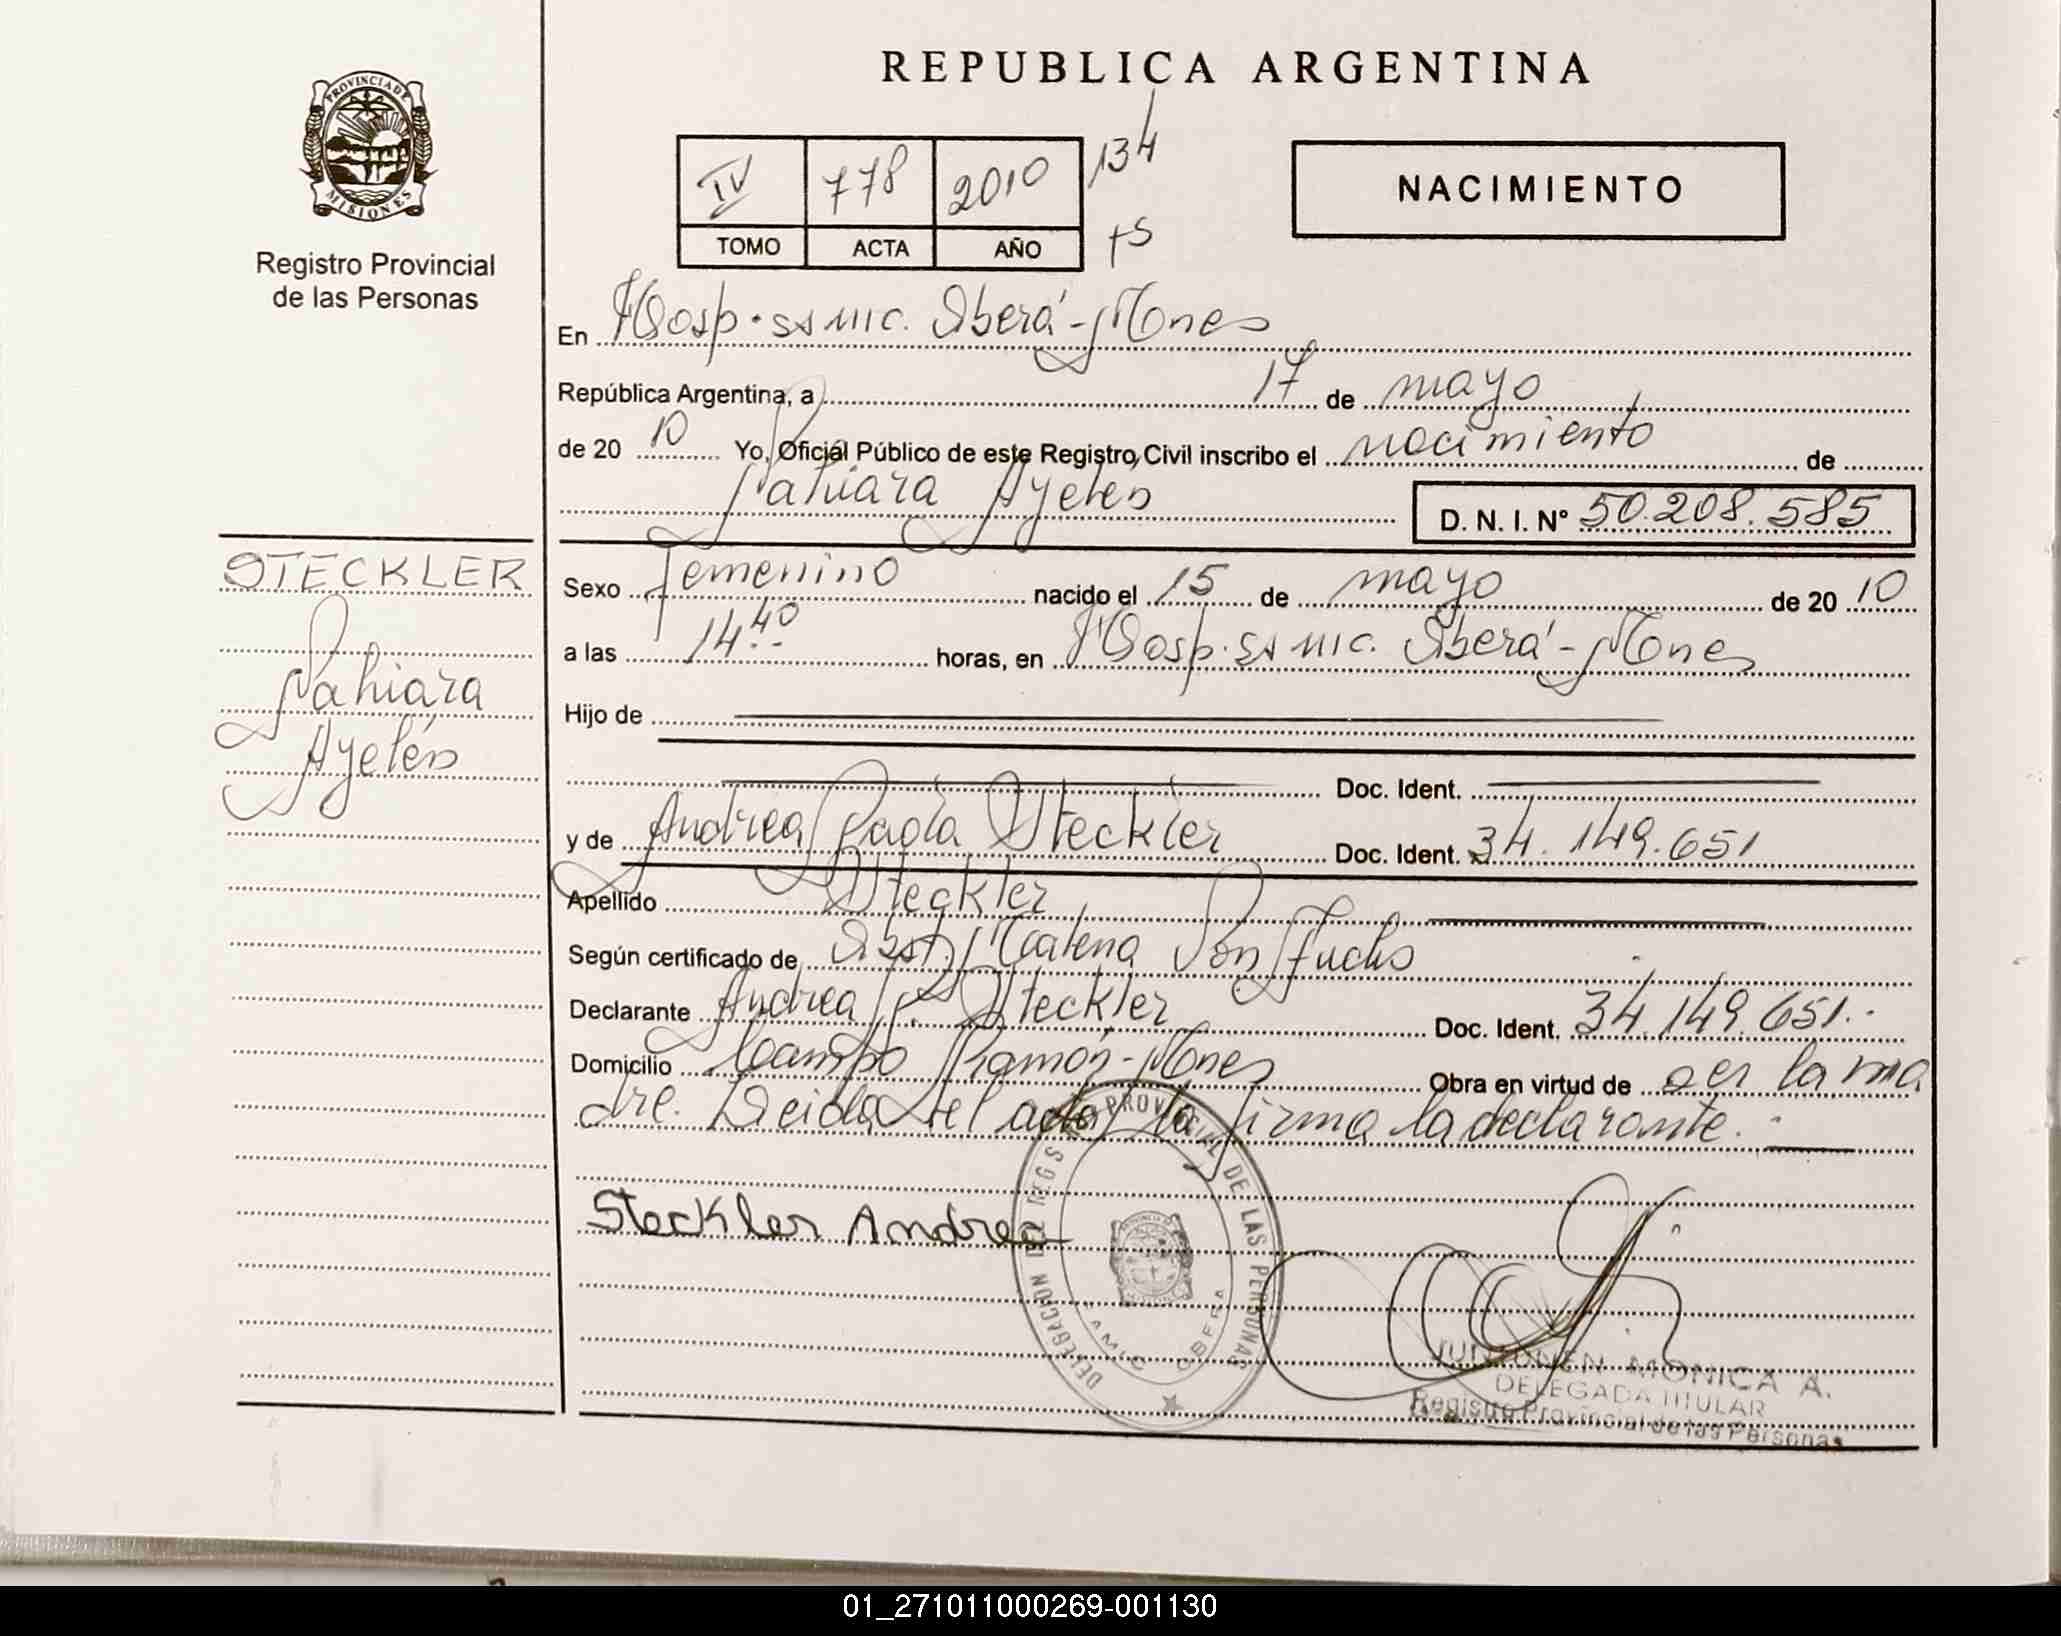 REPUBLICA ARGENTINA
PROVINCIA DE
MISIONES
Registro Provincial
de las Personas
IV 778 2010 134
TOMO ACTA AÑO
NACIMIENTO
En Hosp. ss mic. Oberá - Mones
República Argentina, a 17 de mayo
de 20 10 Yo, Oficial Público de este Registro Civil inscribo el nacimiento de
Nahiara Ayelén D. N. I. N° 50.208.585
STECKLER
Nahiara
Ayelén
Sexo Femenino nacido el 15 de mayo de 20 10
a las 14 40 horas, en Hosp. ss mic. Oberá - Mones
Hijo de
Doc. Ident.
y de Andrea Paola Steckler Doc. Ident. 34.149.651
Apellido Steckler
Según certificado de Obst. Malena Von Fuchs
Declarante Andrea P. Steckler Doc. Ident. 34.149.651.
Domicilio Campo Ramón - Mones Obra en virtud de ser la ma
dre. Leida el acta, la firma la declarante.
Steckler Andrea
DELEGACION DEL REG PROVINCIAL DE LAS PERSONAS
OBERA
MONICA A.
DELEGADA TITULAR
Registro Provincial de las Personas
01_271011000269-001130